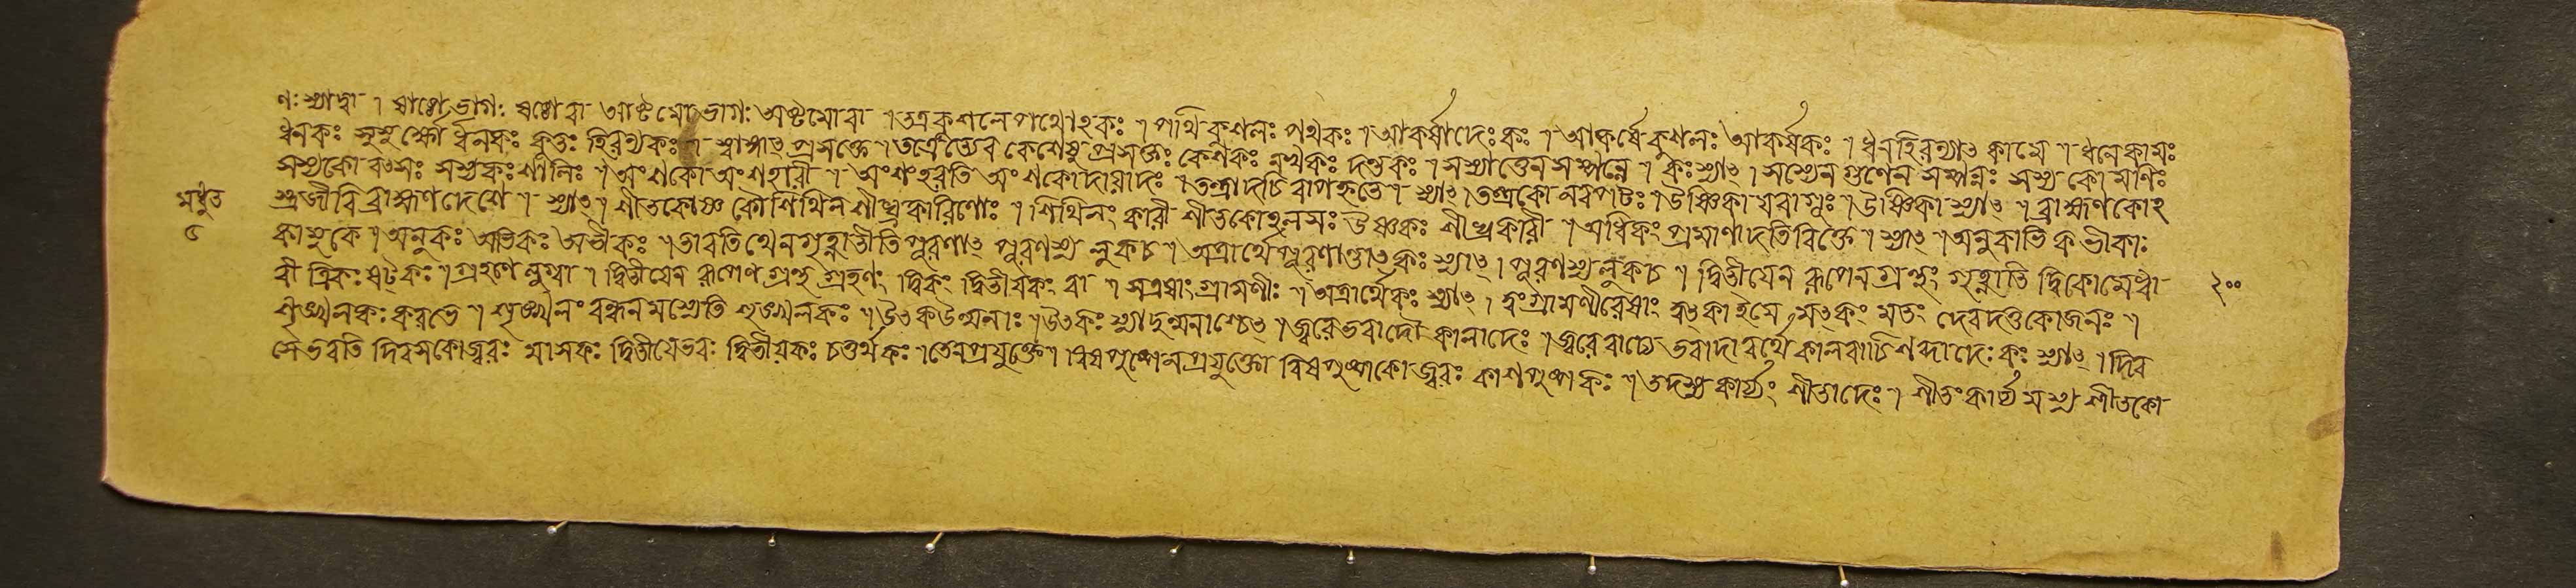 ণঃ স্যাদ্বা । ষাষ্ঠোভাগঃ ষষ্ঠোবা আষ্টমোভাগঃ অষ্টমোবা । তত্রকুশলেপথোহকঃ । পথিকুশলঃ পথকঃ । আকর্ষাদেঃকঃ । আকর্ষেকুশলঃ আকর্ষকঃ । ধনহিরণ্যাৎ কামে । ধনেকামঃ
ধনকঃ হিরণ্যকঃ । স্বাঙ্গাৎ প্রসক্তে । তত্রেত্যেব কেশেষু প্রসক্তঃ কেশকঃ নখকঃ দন্তকঃ । সস্যাত্তেনসম্পন্নে । কঃস্যাৎ । সস্যেন গুণেন সম্পন্নঃ সস্যকোমণিঃ
সস্যকো বৎসঃ সস্যকঃশালিঃ । অংশকোঅংশহারী । অংশংহরতি অংশকোদায়াদঃ । তন্ত্রাদচিরাপহৃতে । স্যাৎ । তন্ত্রকো নবপটঃ । উষ্ণিকা যবাগূঃ । উষ্ণিকাস্যাৎ । ব্রাহ্মণকোহ
স্ত্রজীবিব্রাহ্মণদেশে । স্যাৎ । শীতকোষ্ণকৌশিথিলশীঘ্রকারিণোঃ । শিথিলং কারী শীতকোহলসঃ উষ্ণকঃ শীঘ্রকারী । অধিকং প্রমাণাদতিরিক্তে । স্যাৎ । অনুকাভিকভীকাঃ
কামুকে । অনুকঃ অভিকঃ অভীকঃ । তাবতিথেনগৃহ্ণাতীতিপূরণাৎ পূরণস্য লুকচ । অত্রার্থেপূরণান্তাৎকঃ স্যাৎ । পূরণস্যলুকচ । দ্বিতীয়েন রূপেনগ্রন্থং গৃহ্ণাতি দ্বিকোমেধা
বী ত্রিকঃ ষট্কঃ । গ্রহণেলুগ্বা । দ্বিতীয়েন রূপেণ গ্রন্থ গ্রহণং দ্বিকং দ্বিতীয়কং বা । সএষাংগ্রামণীঃ । অত্রার্থেকঃ স্যাৎ । ত্বংগ্রামণীরেষাং ত্বৎকাইমে মৎকং মতং দেবদত্তকোজনঃ ।
শৃঙ্খলকঃ করভে । শৃঙ্খলং বন্ধনমস্যেতি শৃঙ্খলকঃ । উৎকউন্মনাঃ । উৎকঃ স্যাদুন্মনাশ্চেৎ । জ্বরেভবাদৌ কালাদেঃ । জ্বরেবাচ্যে ভবাদাবর্থেকালবাচিশব্দাদেঃকঃ স্যাৎ । দিব
সেভবতি দিবসকোজ্বরঃ মাসকঃ দ্বিতীয়েভবঃ দ্বিতীয়কঃ চতুর্থকঃ । তেনপ্রযুক্তে । বিষপুষ্পেনপ্রযুক্তো বিষপুষ্পকোজ্বরঃ কাশপুষ্পকঃ । তদস্য কার্য্যং শীতাদেঃ । শীতংকার্য্যমস্য শীতকো
২০০